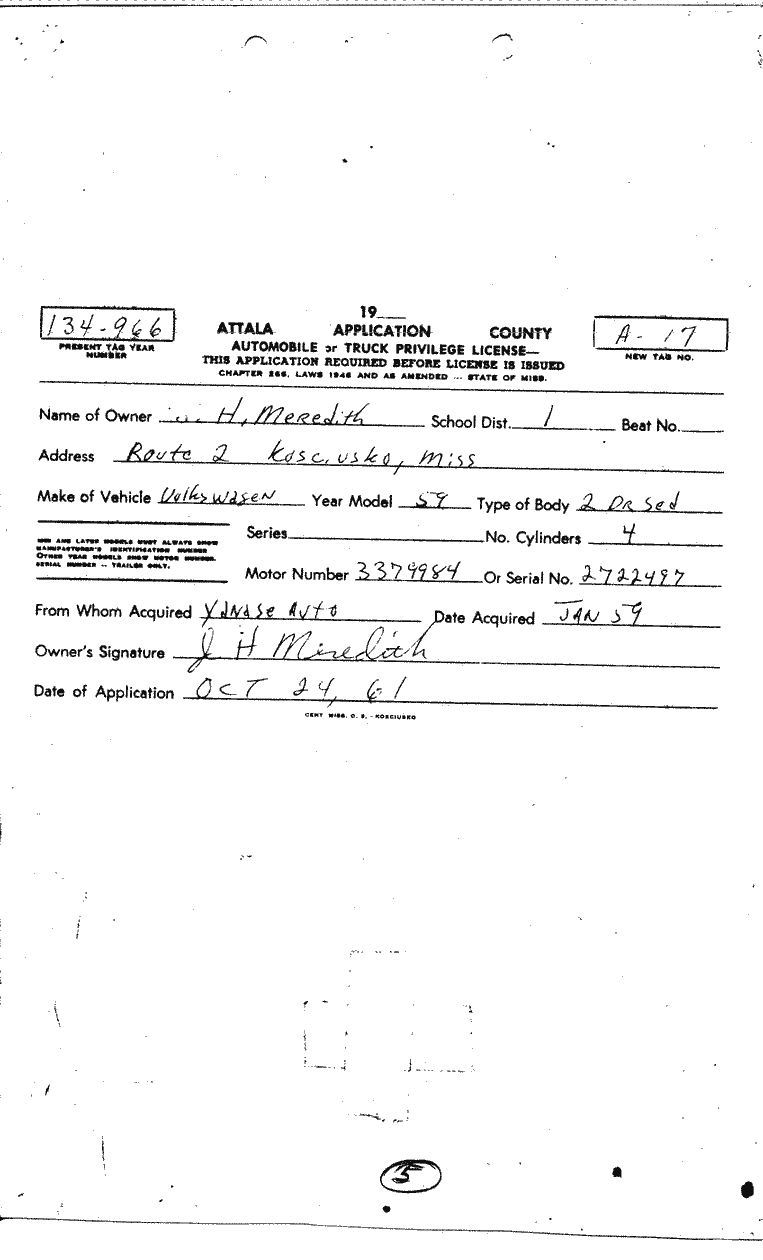 19___
134-966 ATTALA APPLICATION COUNTY A-17
PRESENT TAG YEAR NUMBER AUTOMOBILE or TRUCK PRIVILEGE LICENSE— NEW TAB NO.
THIS APPLICATION REQUIRED BEFORE LICENSE IS ISSUED
CHAPTER 266, LAWS 1946 AND AS AMENDED -- STATE OF MISS.
Name of Owner H, Meredith School Dist. 1 Beat No.
Address Route 2 Kosciusko, Miss
Make of Vehicle Volkswagen Year Model 59 Type of Body 2 DR Sed
Series No. Cylinders 4
AND LATER MODELS MUST ALWAYS SHOW
MANUFACTURER'S IDENTIFICATION NUMBER
OTHER YEAR MODELS SHOW MOTOR NUMBER.
SERIAL NUMBER -- TRAILER ONLY.
Motor Number 3379984 Or Serial No. 2722497
From Whom Acquired Auto Date Acquired JAN 59
Owner's Signature J H Meredith
Date of Application OCT 24, 61
CENT MISS. O. S. - KOSCIUSKO
5